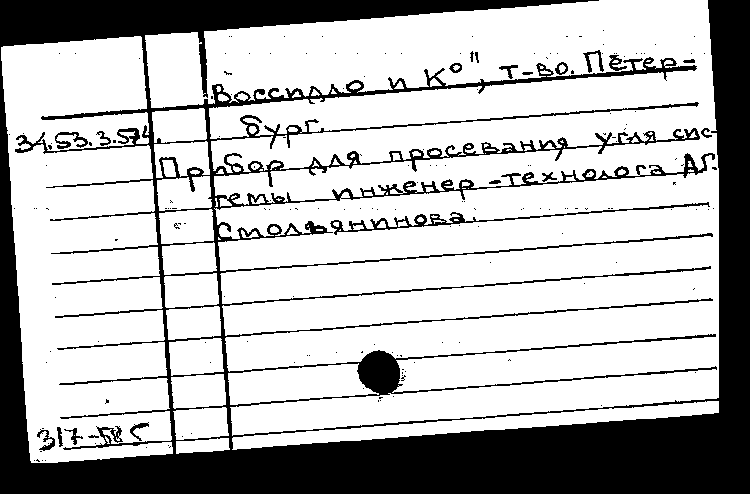 „Воссидло и К°", т-во. Петер-
бург.
34.53.3.574.
Прибор для просевания угля сис-
темы инженер-технолога А.Г.
Смольянинова.
317-585